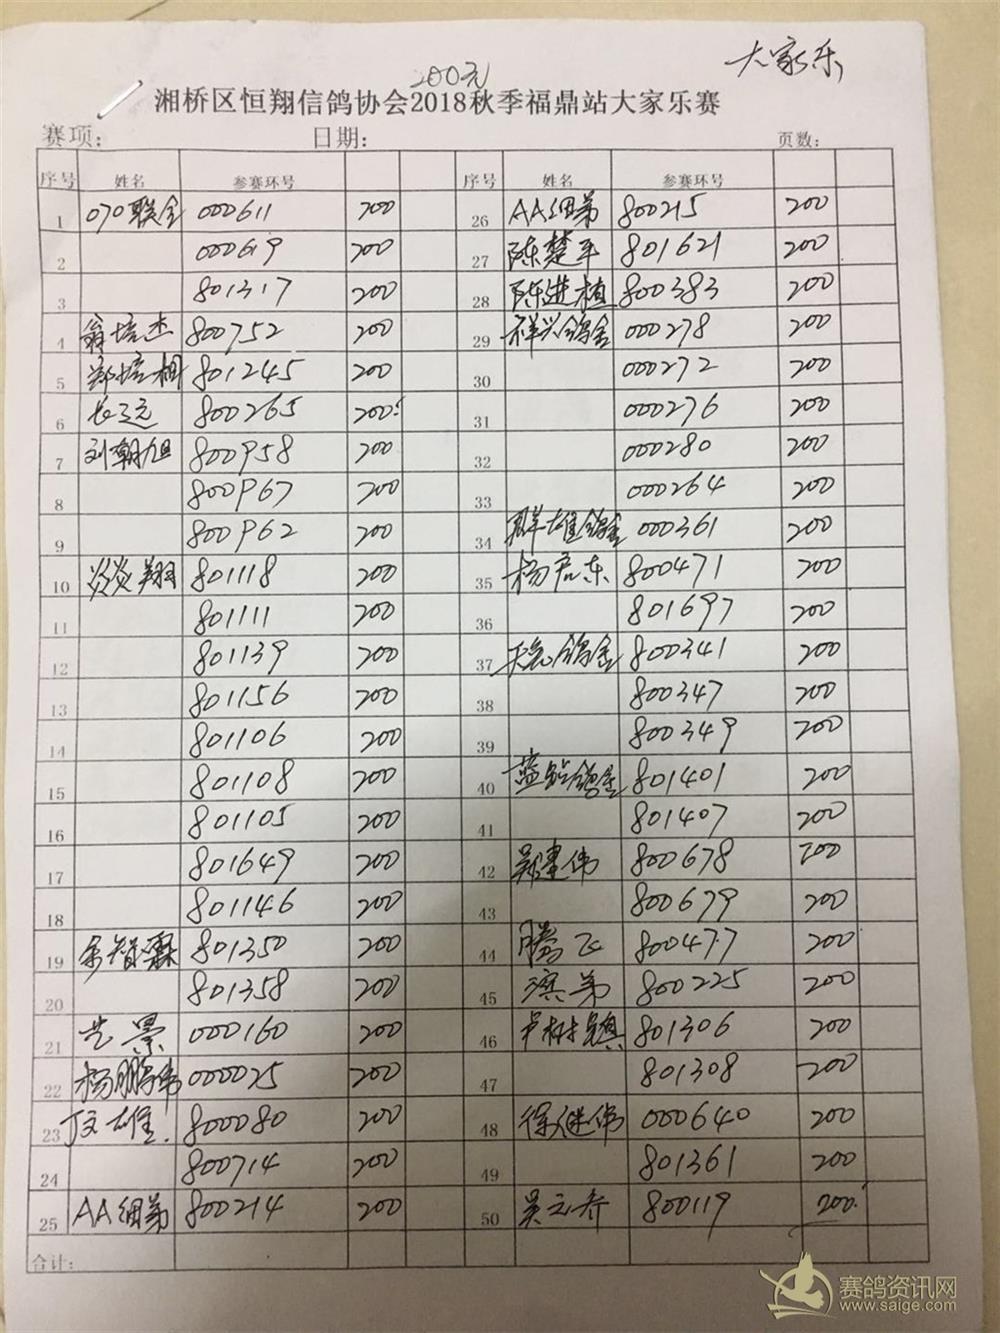 大家乐
200元
湘桥区恒翔信鸽协会2018秋季福鼎站大家乐赛
赛项: 日期: 页数:
序号 姓名 参赛环号 序号 姓名 参赛环号
1 070联合 000611 200 26 AA细弟 800215 200
2 000619 200 27 陈楚平 801621 200
3 801317 200 28 陈进植 800383 200
4 翁培杰 800752 200 29 祥兴鸽舍 000278 200
5 郑培相 801245 200 30 000272 200
6 800265 200 31 000276 200
7 刘朝旭 800958 200 32 000280 200
8 800967 200 33 000264 200
9 800962 200 34 群雄鸽舍 000361 200
10 炎炎翔 801118 200 35 杨君东 800471 200
11 801111 200 36 801697 200
12 801139 200 37 鸽舍 800341 200
13 801156 200 38 800347 200
14 801106 200 39 800349 200
15 801108 200 40 蓝钻鸽舍 801401 200
16 801105 200 41 801407 200
17 801649 200 42 郑建伟 800678 200
18 801146 200 43 800679 200
19 余智霖 801350 200 44 腾飞 800477 200
20 801358 200 45 滨弟 800225 200
21 艺景 000160 200 46 卢树镇 801306 200
22 杨鹏伟 000025 200 47 801308 200
23 文雄 800080 200 48 徐继伟 000640 200
24 800714 200 49 801361 200
25 AA细弟 800214 200 50 吴元乔 800119 200
合计:
赛鸽资讯网
www.saige.com